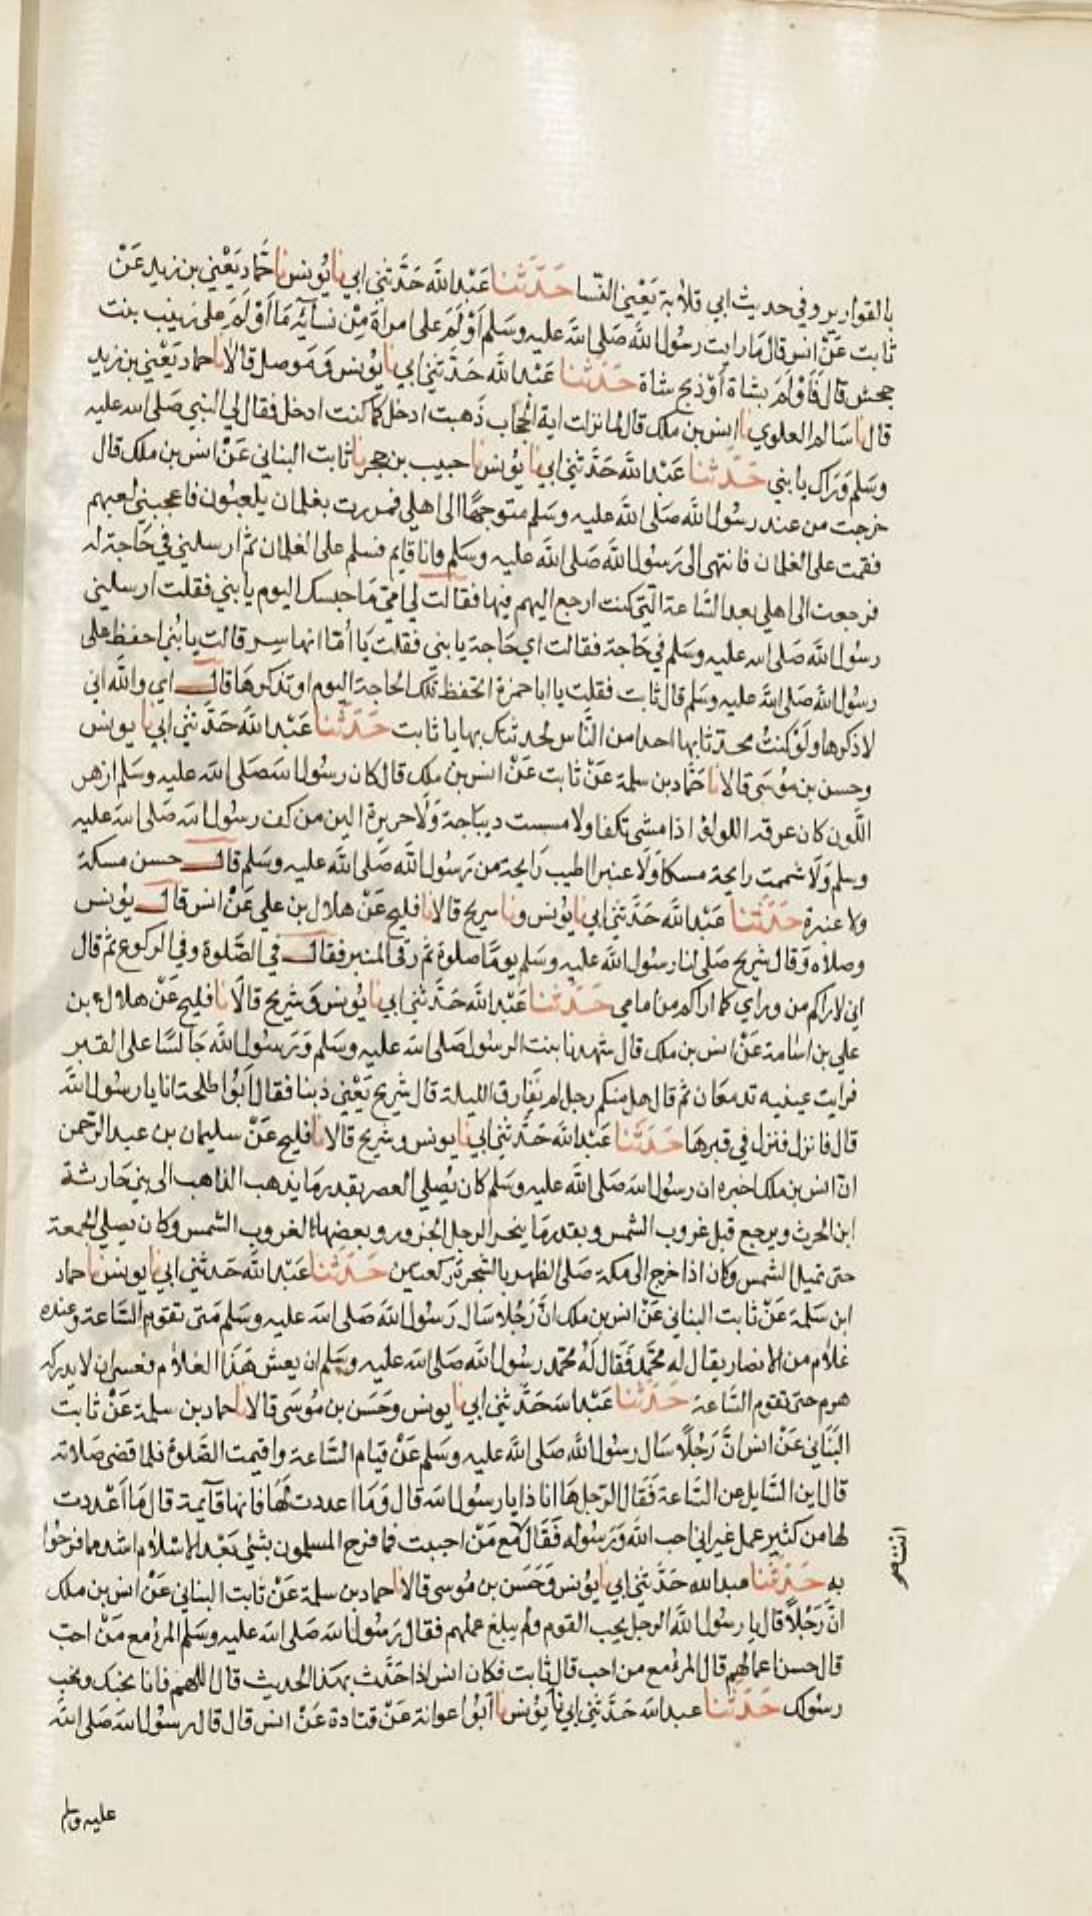 بالقوارير وفي حديث ابي قلابة يَعْنِي النّسا حَدَّثَنا عَبْد الله حَدَّثَني ابي نا يُونس نا حَمَّاد يَعْنِي بن زيد عَنْ
ثابت عَنْ انس قال مَا رايت رسُول الله صَلى الله عليه وسَلم أَوْلَمَ على امراة مِنْ نسائه مَا أَوْلَمَ على زينب بنت
جحش قال فَأَوْلَمَ بشاة أَوْ ذبح شاة حَدَّثَنا عَبْد الله حَدَّثَني ابي نا يُونس وَمَوصل قالا نا حماد يَعْنِي بن زيد
قال نا سَالم العلوي نا انس بن ملك قال لما نزلت اية الحجاب ذَهبت ادخل كما كنت ادخل فقال لي النبي صَلى الله عليه
وسَلم وَرَاك يا بني حَدَّثنا عَبْد الله حَدَّثني ابي نا يُونس نا حبيب بن حجر نا ثابت البناني عَنْ انس بن ملك قال
خرجت من عند رسُول الله صَلى الله عليه وسَلم متوجهًا الى اهلي فمررت بغلمان يلعبُون فاعجبني لعبهم
فقمت على الغلمان فانتهى الى رَسُول الله صَلى الله عليه وسَلم وانا قايم فسلم على الغلمان ثم ارسلني في حَاجة له
فرجعت الى اهلي بعد السَّاعة التي كنت ارجع اليهم فيها فقالت لي امي مَا حبسك اليوم يا بني فقلت ارسلني
رسُول الله صَلى الله عليه وسَلم في حَاجة فقالت اي حَاجة يا بني فقلت يَا أمّا انها سر قالت يا بُني احفظ على
رسُول الله صَلى الله عليه وسَلم قال ثابت فقلت يا ابا حمزة اتحفظ تلك الحاجة اليوم او تذكرهَا قال اي والله اني
لاذكرها ولَوْ كنتُ محدثا بها احدا من النَّاس لحدثتك بها يا ثابت حَدَّثَنا عَبْد الله حَدَّثَني ابي نا يونس
وحسن بن مُوسَى قالا نا حَمّاد بن سلمة عَنْ ثابت عَنْ انس بن ملك قال كان رسُول الله صَلى الله عليه وسَلم ازهر
اللّون كان عرقه اللولؤ اذا مشى تكفا ولا مسست ديباجة وَلَا حريرة الين من كف رسُول الله صَلى الله عليه
وسلم وَلَا شممت رايحة مسكا وَلَا عنبرا اطيب رَايحة من رَسُول الله صَلى الله عليه وسَلم قال حسن مسكة
ولا عنبرة حَدَّثَنا عَبْد الله حَدَّثني ابي نا يُونس ونا سريج قالا نا فليح عَنْ هلال بن علي عَنْ انس قال يُونس
وصلاه وَقال شريح صَلى لنا رسُول الله عليه وسَلم يومًا صلوة ثم رقى المنبر فقال في الصّلوة وفي الركوع ثم قال
اني لاراكم من وراي كما اراكم من امامي حَدَّثنا عَبْد الله حَدَّثَني ابي نا يُونس وَشريح قالَا نا فليح عَنْ هلال بن
علي بن اسامة عَنْ انس بن ملك قال شهدنا بنت الرسُول صَلى الله عليه وسَلم وَرَسُول الله جَالسًا على القبر
فرايت عينيه تدمعَان ثم قال هل منكم رجل لم يقارف الليلة قال شريح يَعْنِي ذنبا فقال أبُو طلحة انا يا رسُول الله
قال فانزل فنزل في قبرهَا حَدَّثَنا عَبْد الله حَدَّثَني ابي نا يونس وشريح قالا نا فليح عَنْ سليمان بن عبد الرحمن
انّ انس بن ملك اخبره ان رسُول الله صَلى الله عليه وسَلم كان يُصلي العصر بقدر مَا يذهب الذاهب الى بني حَارثة
ابن الحرث ويرجع قبل غروب الشمس وبقدر مَا ينحر الرجل الجزور وبعضها لغروب الشمس وكان يصلي الجمعة
حتى تميل الشمس وكان اذا خرج الى مكة صَلى الظهر بالشجرة ركعتين حَدَّثَنا عَبْد الله حَدثني ابي نا يونس نا حماد
ابن سَلمة عَنْ ثابت البناني عَنْ انس بن ملك انَّ رَجُلا سَال رَسُول الله صَلى الله عليه وسَلم مَتى تقوم السَّاعة وعنده
غلَام من الانصار يقال له محمَّد فَقَال لَهُ محمد رسُول الله صَلى الله عليه وسَلم ان يعش هَذا الغلام فعسى ان لا يدركه
هرم حتى تقوم السَّاعة حَدَّثنا عَبْد الله حَدَّثَني ابي نا يونس وحَسَن بن مُوسَى قالا نا حماد بن سلمة عَنْ ثابت
البَنَاني عَنْ انس انَّ رَجُلًا سَال رسُول الله صَلى الله عليه وسَلم عَنْ قيام السَّاعة واقيمت الصَّلوة فلما قضى صَلاته
قال اين السَّايل عن السَّاعة فَقَال الرّجل هَا انا ذا يا رسُول الله قال وَمَا اعددت لَهَا فانها قَآيمة قال مَا اَعْددت
لها من كثير عمل غير اني احب الله وَرَسُوله فَقَال مَع مَنْ احببت فما فرح المسلمون بشئ بَعْد الاسْلام اشد مما فرحوا
به حَدَّثَنا عبد الله حَدَّثَني ابي نا يُونس وَحَسَن بن مُوسى قالا نا حماد بن سلمة عَنْ ثابت البناني عَنْ انس بن ملك
انَّ رَجُلًا قال يا رسُول الله الرجل يحب القوم ولم يبلغ عملهم فقال رَسُول الله صَلى الله عليه وسَلم المرؤ مع مَنْ احبّ
قال حسن اعمالهم قال المرؤ مع من احب قال ثابت فكان انس اذا حَدَّث بهذا الحديث قال اللهم فانا نحبك ونحب
رسُولك حَدَّثَنا عبد الله حَدَّثَني ابي نا يُونس نا أبُو عوانة عَنْ قتادة عَنْ انس قال قال رسُول الله صَلى الله
عليه وسلم